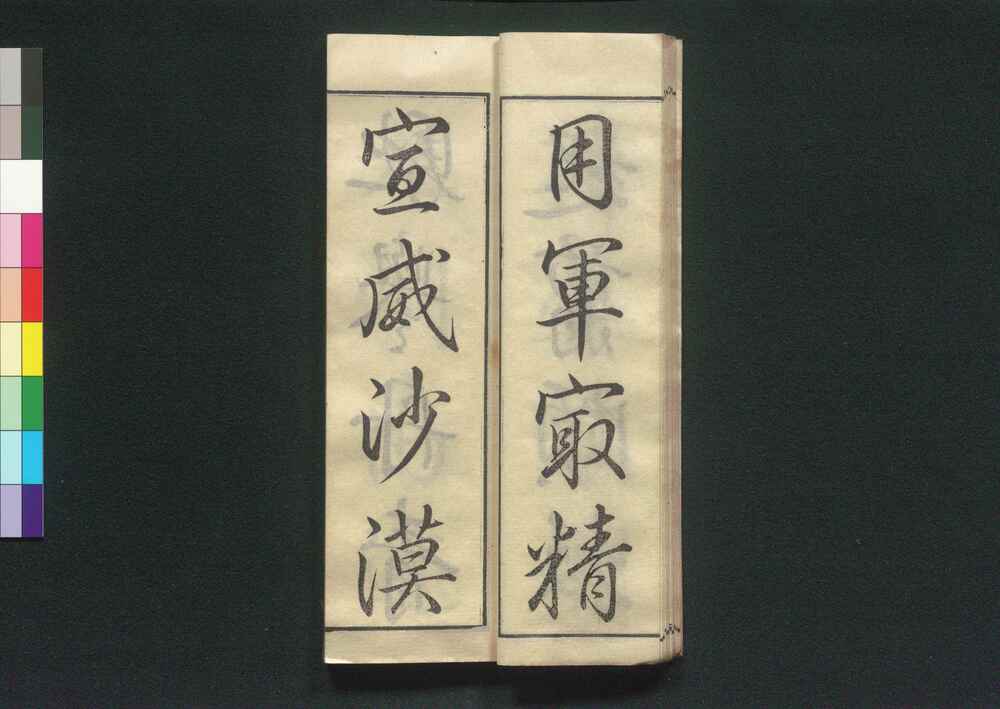 用軍㝡精
宣威沙漠